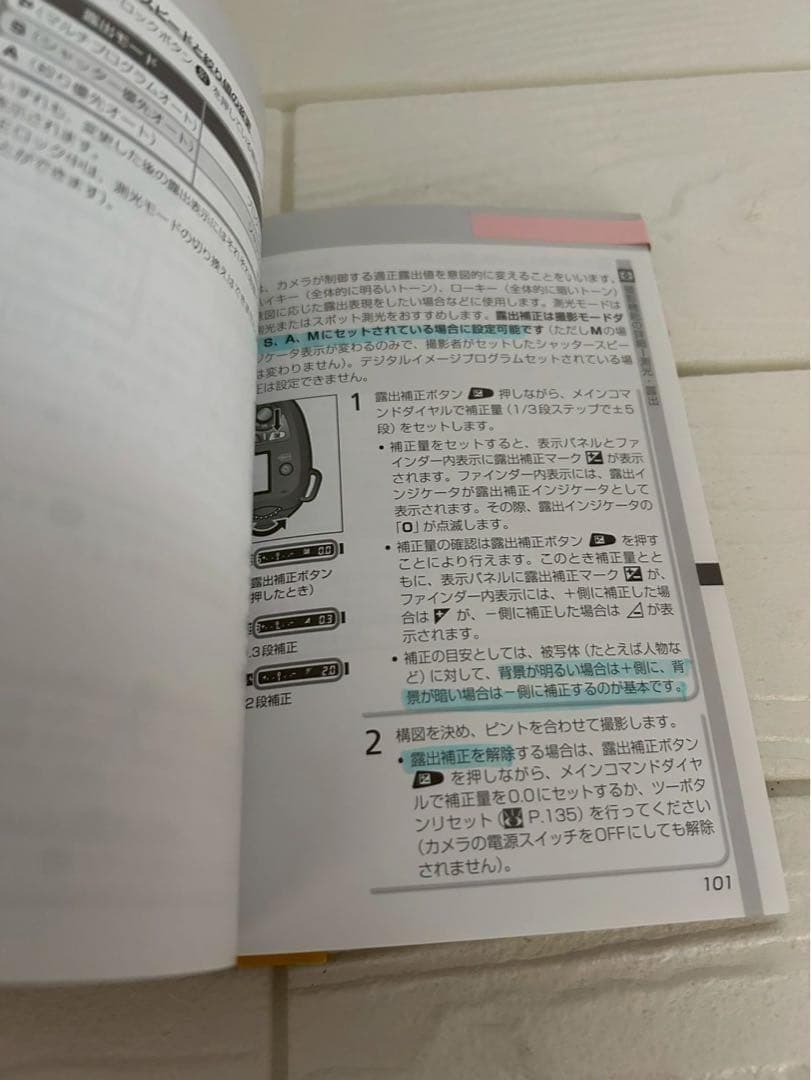 スピードと絞り値の変更
ロックボタン を押している
露出モード
P (マルチプログラムオート)
S (シャッター優先オート)
A (絞り優先オート)
いずれも、変更した後の露出表示にはそれぞれ
表示されます。
ロック中は、測光モードの切り換えはできま
とができます)。
は、カメラが制御する適正露出値を意図的に変えることをいいます。
ハイキー（全体的に明るいトーン）、ローキー（全体的に暗いトーン）
意図に応じた露出表現をしたい場合などに使用します。測光モードは
測光またはスポット測光をおすすめします。露出補正は撮影モードダ
S、A、Mにセットされている場合に設定可能です（ただしMの場
ジケータ表示が変わるのみで、撮影者がセットしたシャッタースピー
は変わりません）。デジタルイメージプログラムセットされている場
正は設定できません。
1
露出補正ボタン 押しながら、メインコマ
ンドダイヤルで補正量（1/3段ステップで±5
段）をセットします。
• 補正量をセットすると、表示パネルとファ
インダー内表示に露出補正マーク が表示
されます。ファインダー内表示には、露出イ
ンジケータが露出補正インジケータとして
表示されます。その際、露出インジケータの
「0」が点滅します。
• 補正量の確認は露出補正ボタン を押す
ことにより行えます。このとき補正量とと
もに、表示パネルに露出補正マーク が、
ファインダー内表示には、＋側に補正した場
合は が、－側に補正した場合は が表
示されます。
• 補正の目安としては、被写体（たとえば人物な
ど）に対して、背景が明るい場合は＋側に、背
景が暗い場合は－側に補正するのが基本です。
0.0
露出補正ボタン
押したとき）
0.3
.3段補正
2.0
2段補正
2
構図を決め、ピントを合わせて撮影します。
• 露出補正を解除する場合は、露出補正ボタン
を押しながら、メインコマンドダイヤ
ルで補正量を0.0にセットするか、ツーボタ
ンリセット（ P.135）を行ってください
（カメラの電源スイッチをOFFにしても解除
されません）。
測光・露出
101